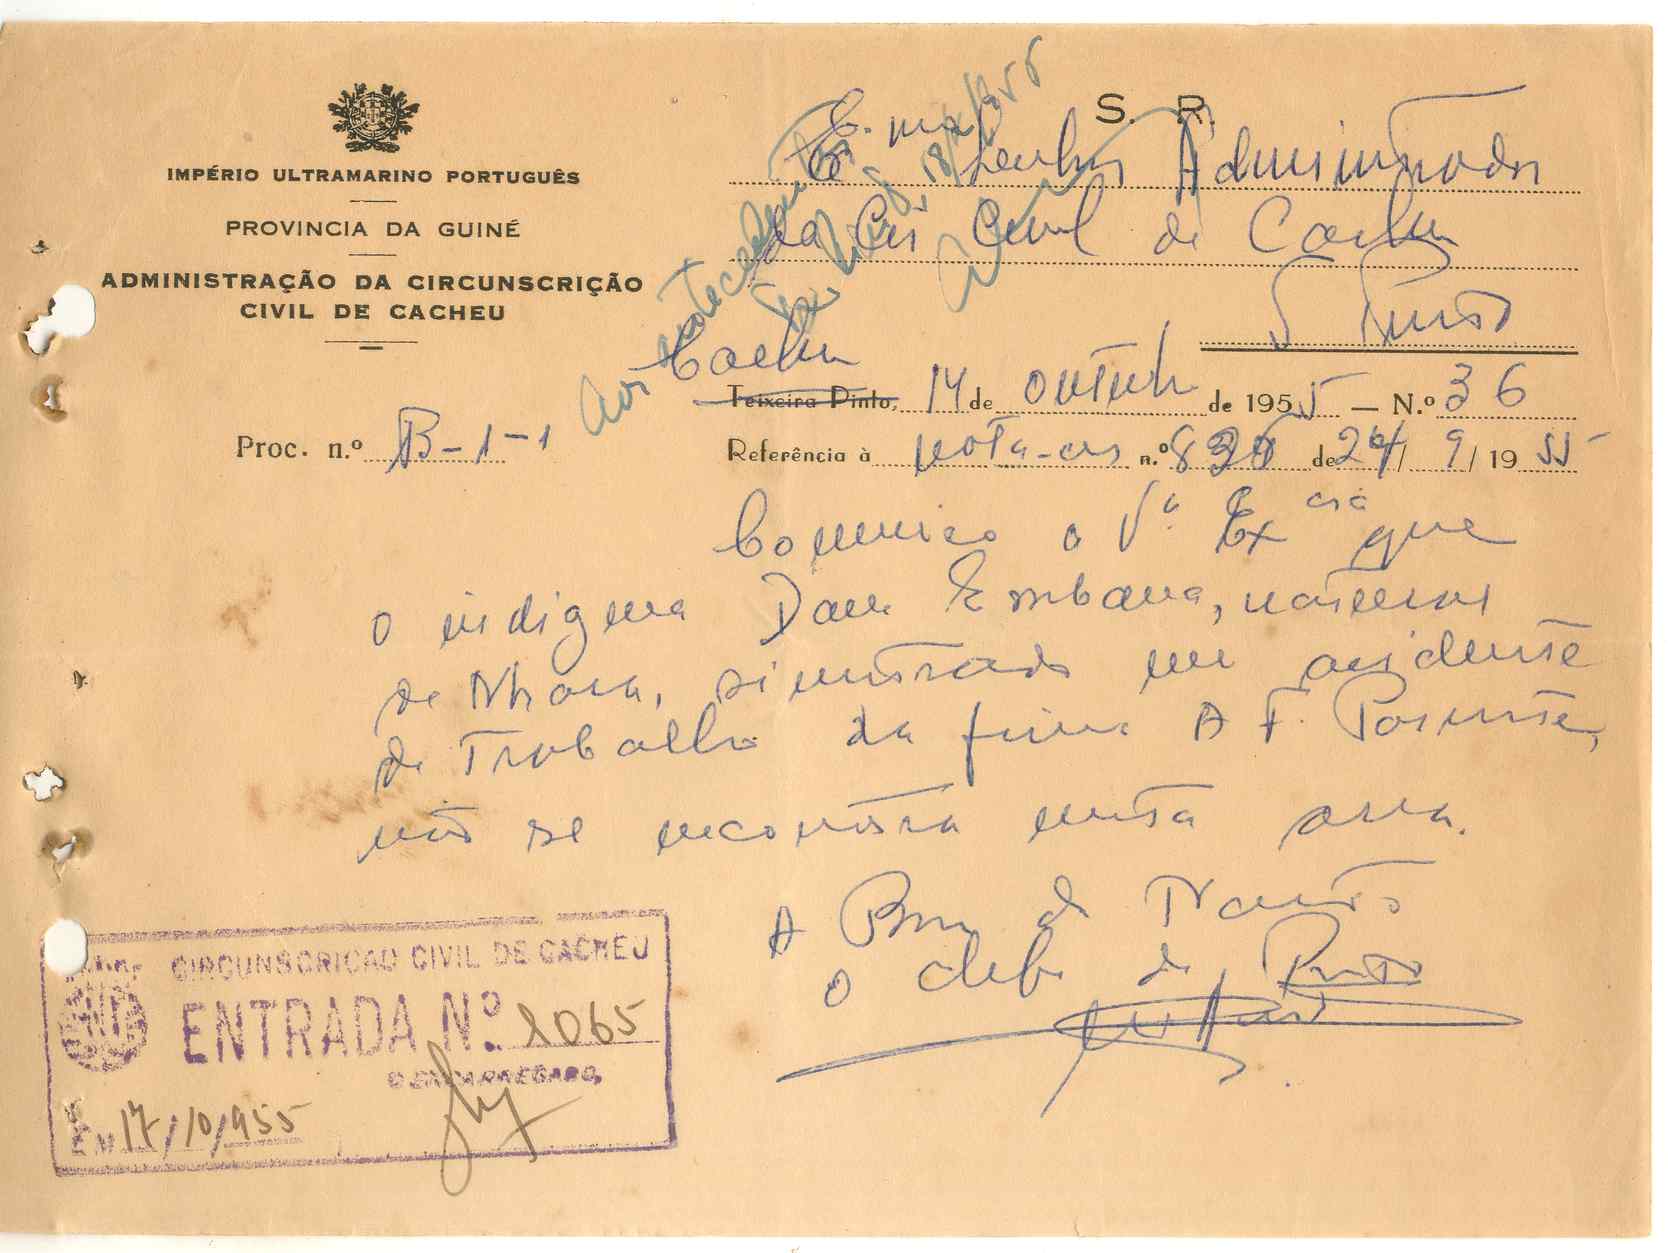 IMPÉRIO ULTRAMARINO PORTUGUÊS
PROVINCIA DA GUINÉ
ADMINISTRAÇÃO DA CIRCUNSCRIÇÃO
CIVIL DE CACHEU
Proc. n.º B-1-1
S. R.
Senhor Administrador
da Civil de Cacheu
Aos antecedentes
18/X/955
Cacheu
Teixeira Pinto, 14 de Outubro de 1955 — N.º 36
Referência à nota-cir n.º de 24/9/1955
Comunico a V.ª Ex.cia que
o indigena Dam Embana, natural
de Nhora, sinistrado em acidente
de Trabalho da firma A F. Parente,
não se encontra nesta area.
A Bem da Nação
O chefe de Posto
CIRCUNSCRICAO CIVIL DE CACHEU
ENTRADA N.º 1065
O ENCARREGADO,
Em 17/10/955